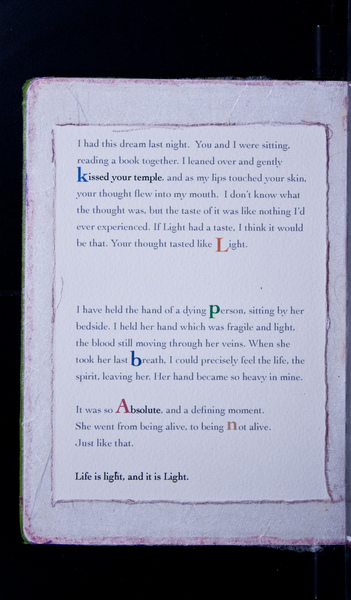 I had this dream last night. You and I were sitting,
reading a book together. I leaned over and gently
kissed your temple, and as my lips touched your skin,
your thought flew into my mouth. I don't know what
the thought was, but the taste of it was like nothing I'd
ever experienced. If Light had a taste, I think it would
be that. Your thought tasted like Light.
I have held the hand of a dying person, sitting by her
bedside. I held her hand which was fragile and light,
the blood still moving through her veins. When she
took her last breath, I could precisely feel the life, the
spirit, leaving her. Her hand became so heavy in mine.
It was so Absolute, and a defining moment.
She went from being alive, to being not alive.
Just like that.
Life is light, and it is Light.